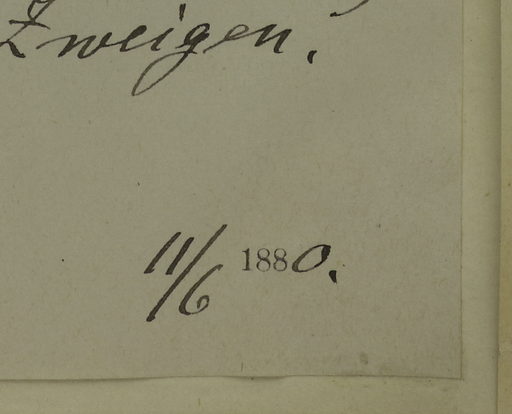 Zweigen.
11/6 1880.